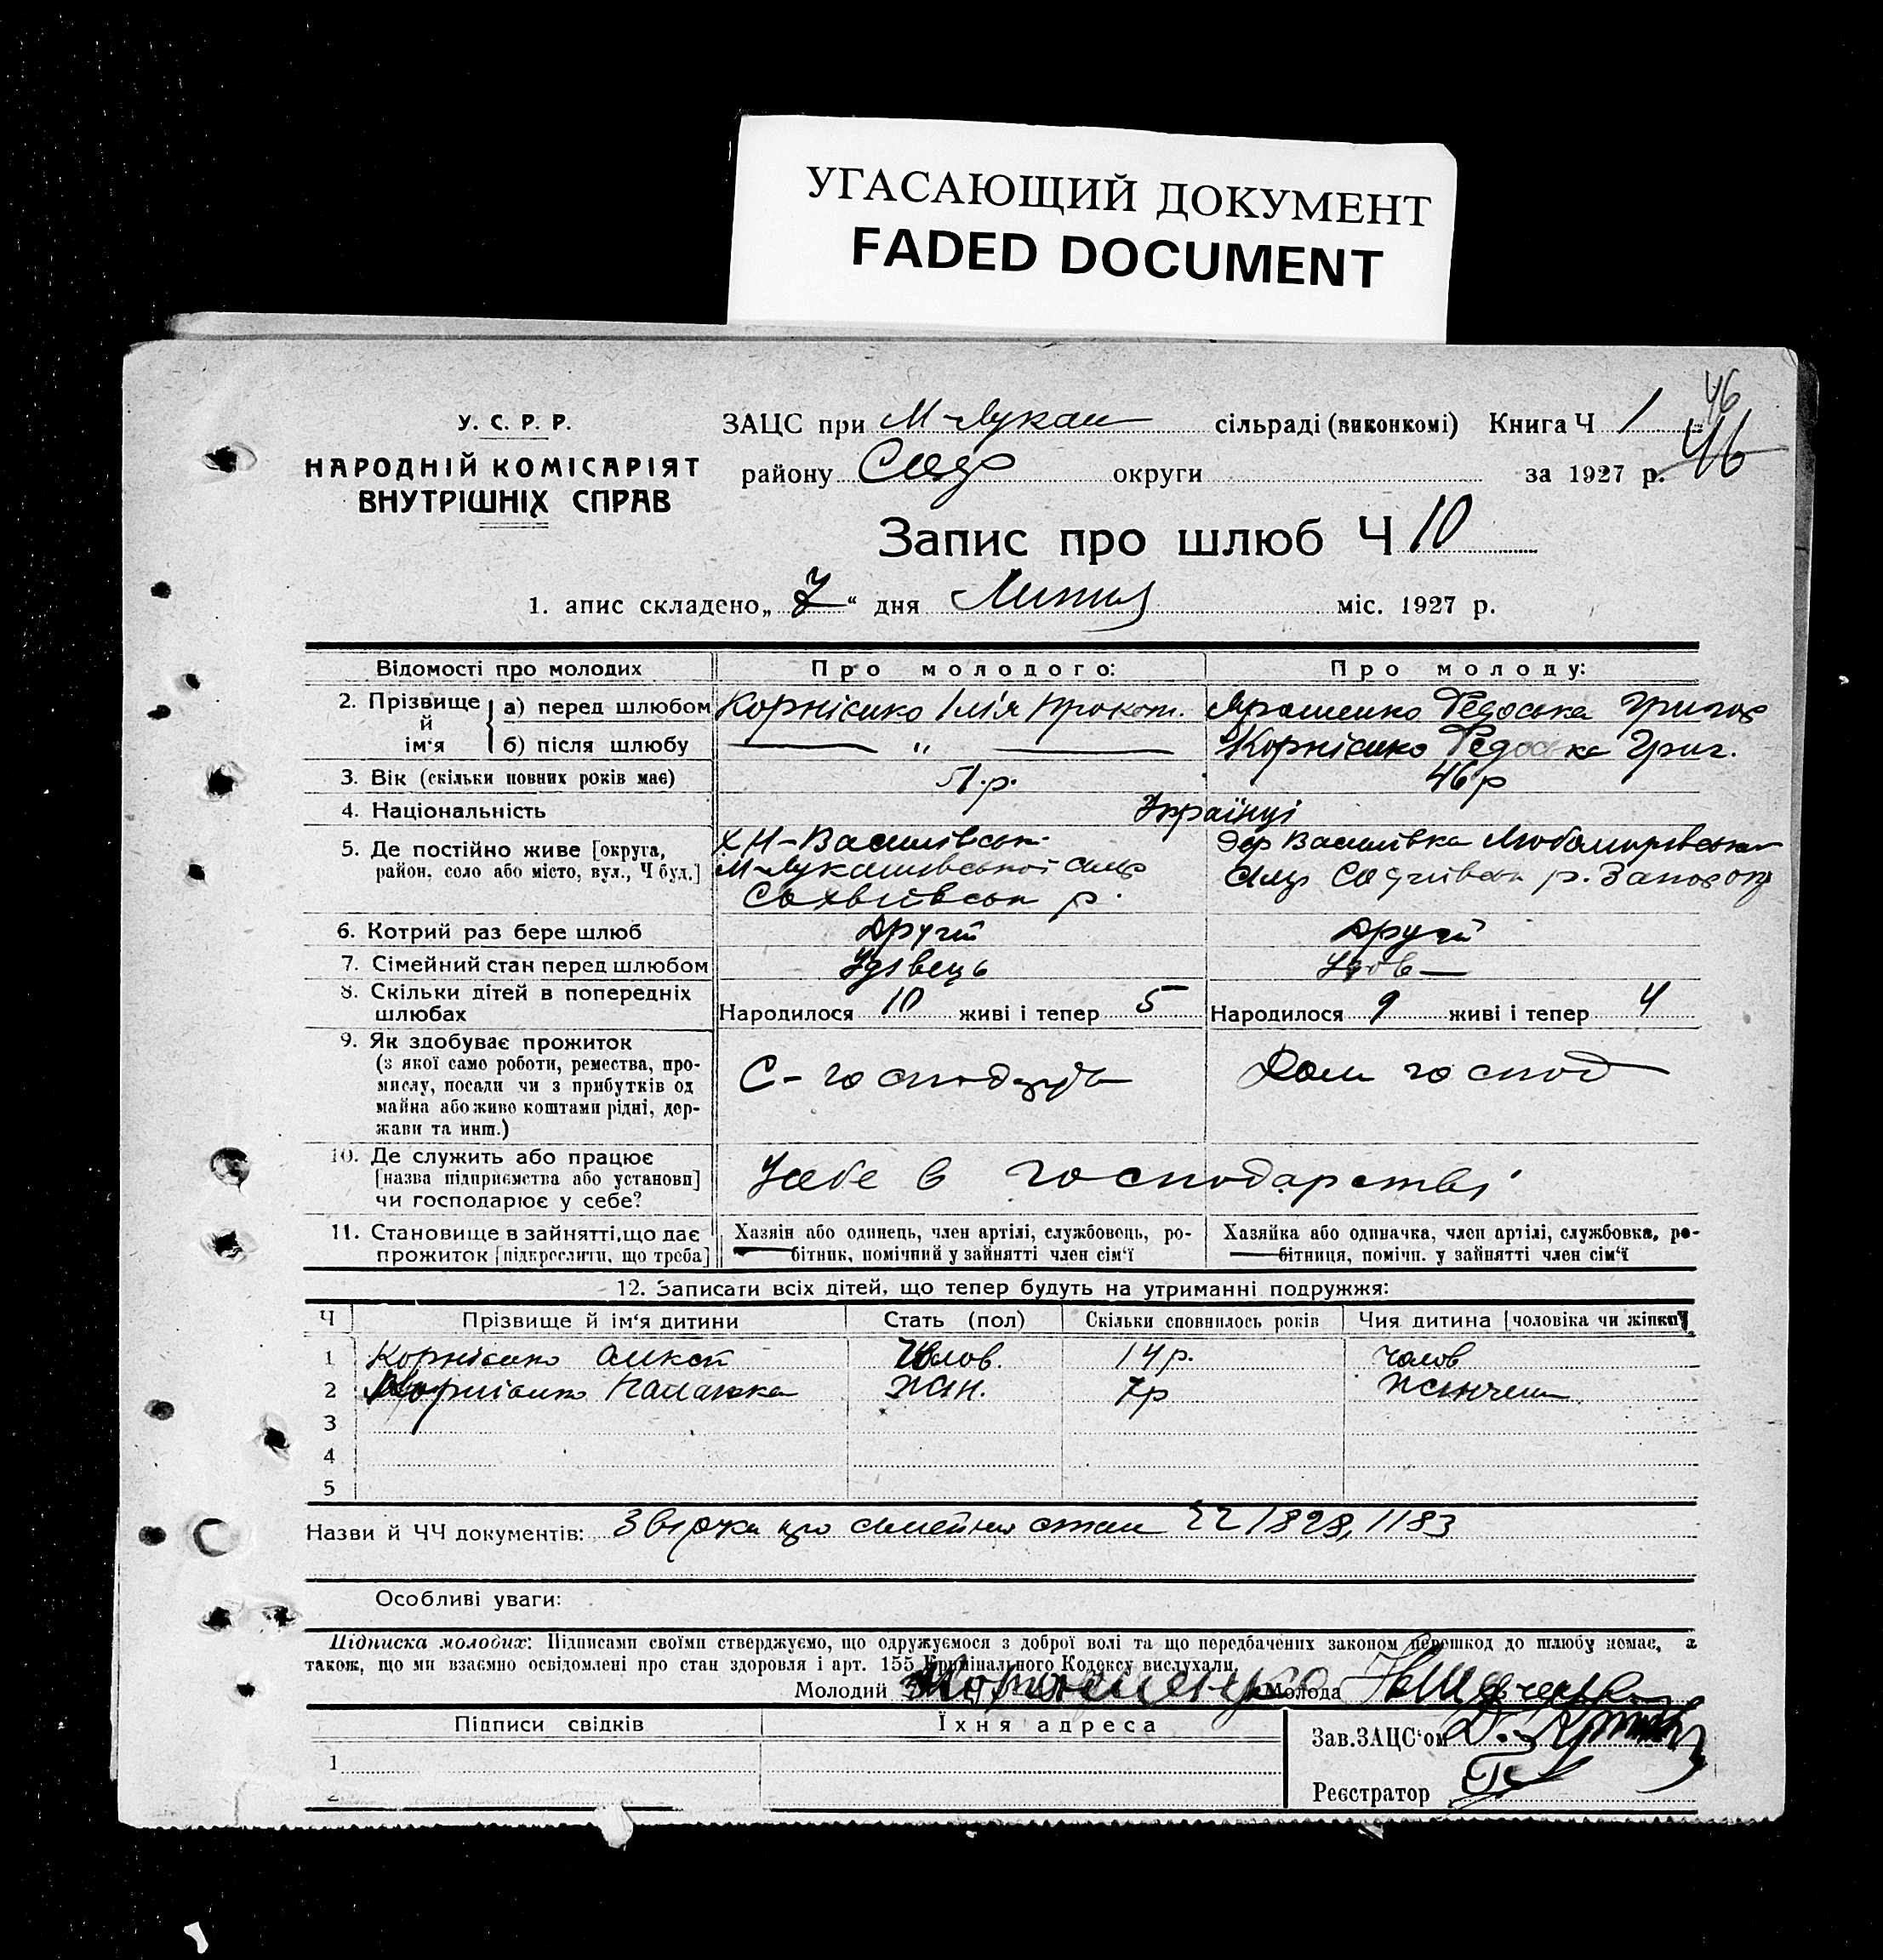 УГАСАЮЩИЙ ДОКУМЕНТ
FADED DOCUMENT
46
У. С. Р. Р.
НАРОДНІЙ КОМІСАРІЯТ
ВНУТРІШНІХ СПРАВ
ЗАЦС при М-Лукаш сільраді (виконкомі) Книга Ч 1
46
району округи за 1927 р.
Запис про шлюб Ч 10
1. апис складено „7“ дня Липня міс. 1927 р.
Відомості про молодих
Про молодого:
Про молоду:
2. Прізвище й ім'я
а) перед шлюбом
Корнієнко Ілія Прокоп.
Ярошенко Федоська Григор
б) після шлюбу
— " —
Корнієнко Федоська Григ.
3. Вік (скільки повних років має)
51.р.
46 р
4. Національність
Українці
5. Де постійно живе [округа,
район, село або місто, вул., Ч буд.]
Х Н-Василівськ.
М-Лукашівської сілр
Софіївськ р.
дер Василівка Любомирівська
сілр Софіївськ р. Запор окр
6. Котрий раз бере шлюб
Другий
Другий
7. Сімейний стан перед шлюбом
Удівець
Удов—
8. Скільки дітей в попередніх
шлюбах
Народилося 10 живі і тепер 5
Народилося 9 живі і тепер 4
9. Як здобуває прожиток
(з якої само роботи, ремества, про-
мислу, посади чи з прибутків од
майна або живе коштами рідні, дер-
жави та инш.)
С-господар
Дом господ
10. Де служить або працює
[назва підприємства або установи]
чи господарює у себе?
У себе в господарстві
11. Становище в зайнятті, що дає
прожиток [підкреслити, що треба]
Хазяін або одинець, член артілі, службовець, ро-
бітник, помічний у зайнятті член сім'ї
Хазяйка або одиначка, член артілі, службовка, ро-
бітниця, помічн. у зайнятті член сім'ї
12. Записати всіх дітей, що тепер будуть на утриманні подружжя:
Ч Прізвище й ім'я дитини Стать (пол) Скільки сповнилось років Чия дитина [чоловіка чи жінки]
1 Корнієнко Олекс Чолов. 14 р. чолов
2 Корнієнко Палажка жін. 7 р
3
4
5
Назви й ЧЧ документів: Звірка про сімейний стан 1828, 1183
Особливі уваги:
Підписка молодих: Підписами своїми стверджуємо, що одружуємося з доброї волі та що передбачених законом перешкод до шлюбу немає, а
також, що ми взаємно освідомлені про стан здоровля і арт. 155 Крімінального Кодексу вислухали.
Молодий Молода
Підписи свідків
Їхня адреса
Зав. ЗАЦС'ом
1
2
Реєстратор